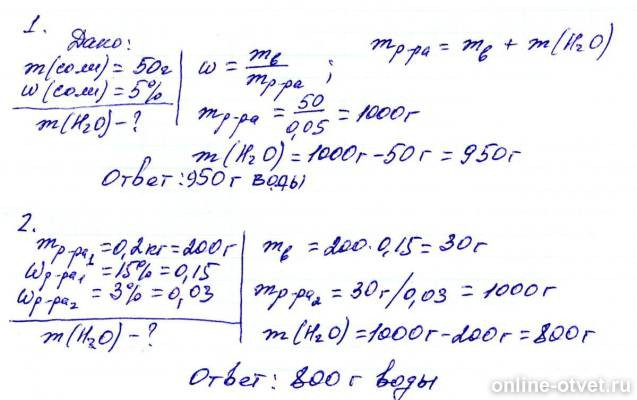 1.
Дано:
m(соли) = 50г
w(соли) = 5%
m(H₂O) - ?
w = mв/mр-ра ; mр-ра = mв + m(H₂O)
mр-ра = 50/0,05 = 1000г
m(H₂O) = 1000г - 50г = 950г
Ответ: 950 г воды
2.
mр-ра₁ = 0,2кг = 200г
wр-ра₁ = 15% = 0,15
wр-ра₂ = 3% = 0,03
m(H₂O) - ?
mв = 200·0,15 = 30г
mр-ра₂ = 30г/0,03 = 1000г
m(H₂O) = 1000г - 200г = 800г
Ответ: 800 г воды
online-otvet.ru